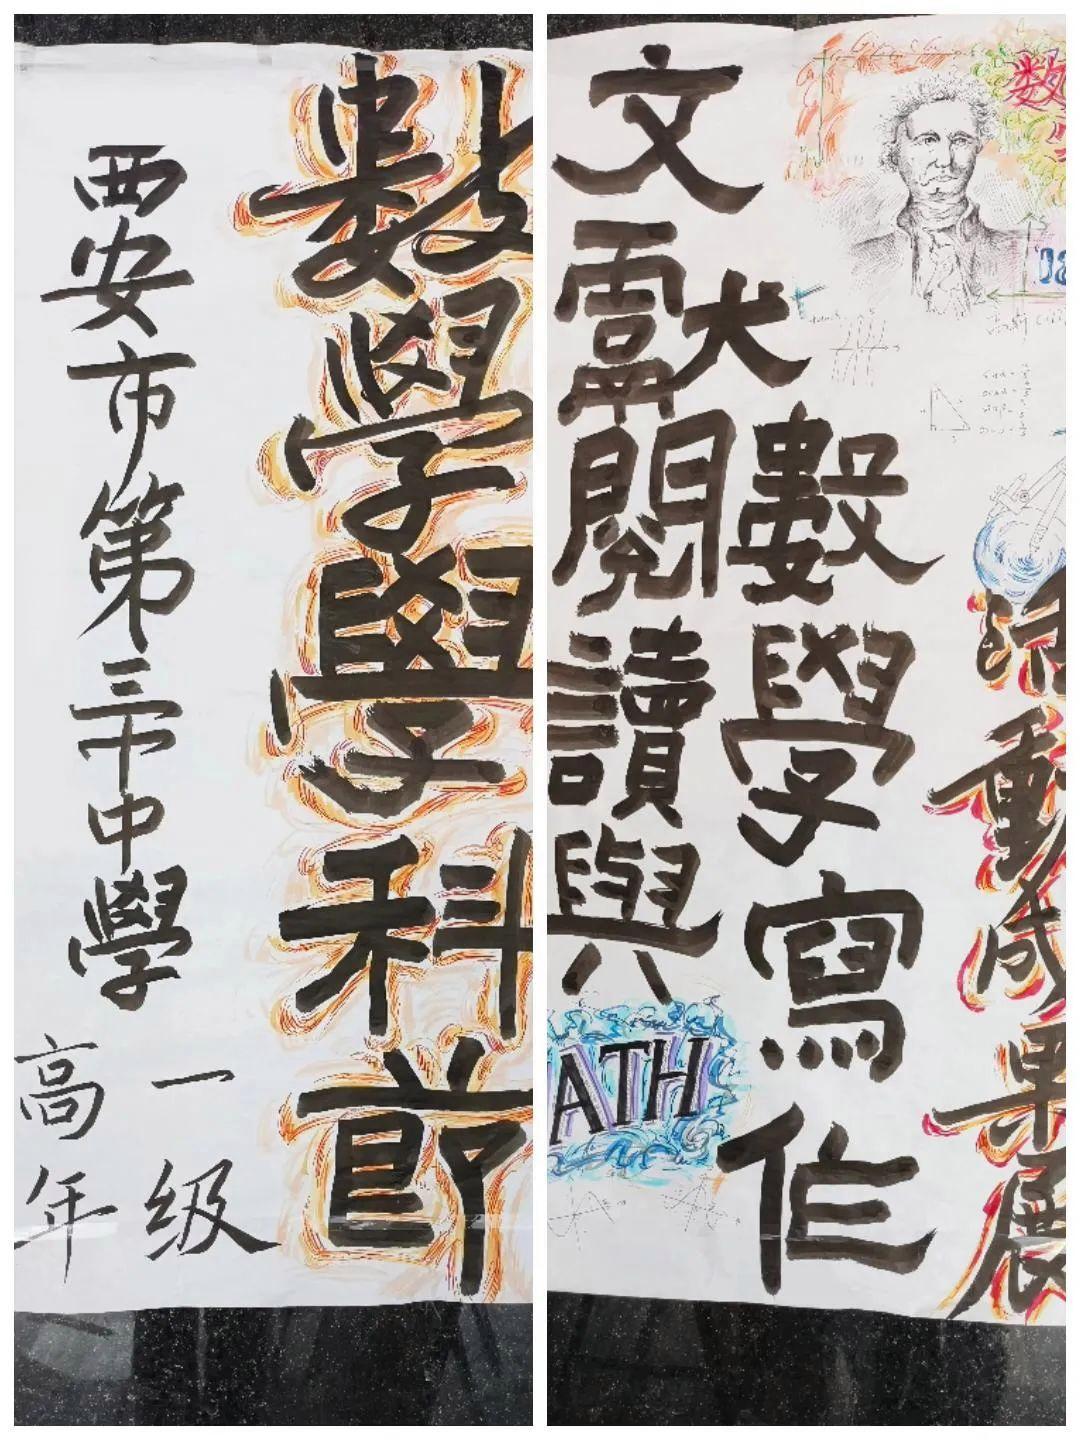 西安市第三十中學
高一
年级
數學學科節
文獻閱讀與
數學寫作
ATH
数
活動成果展